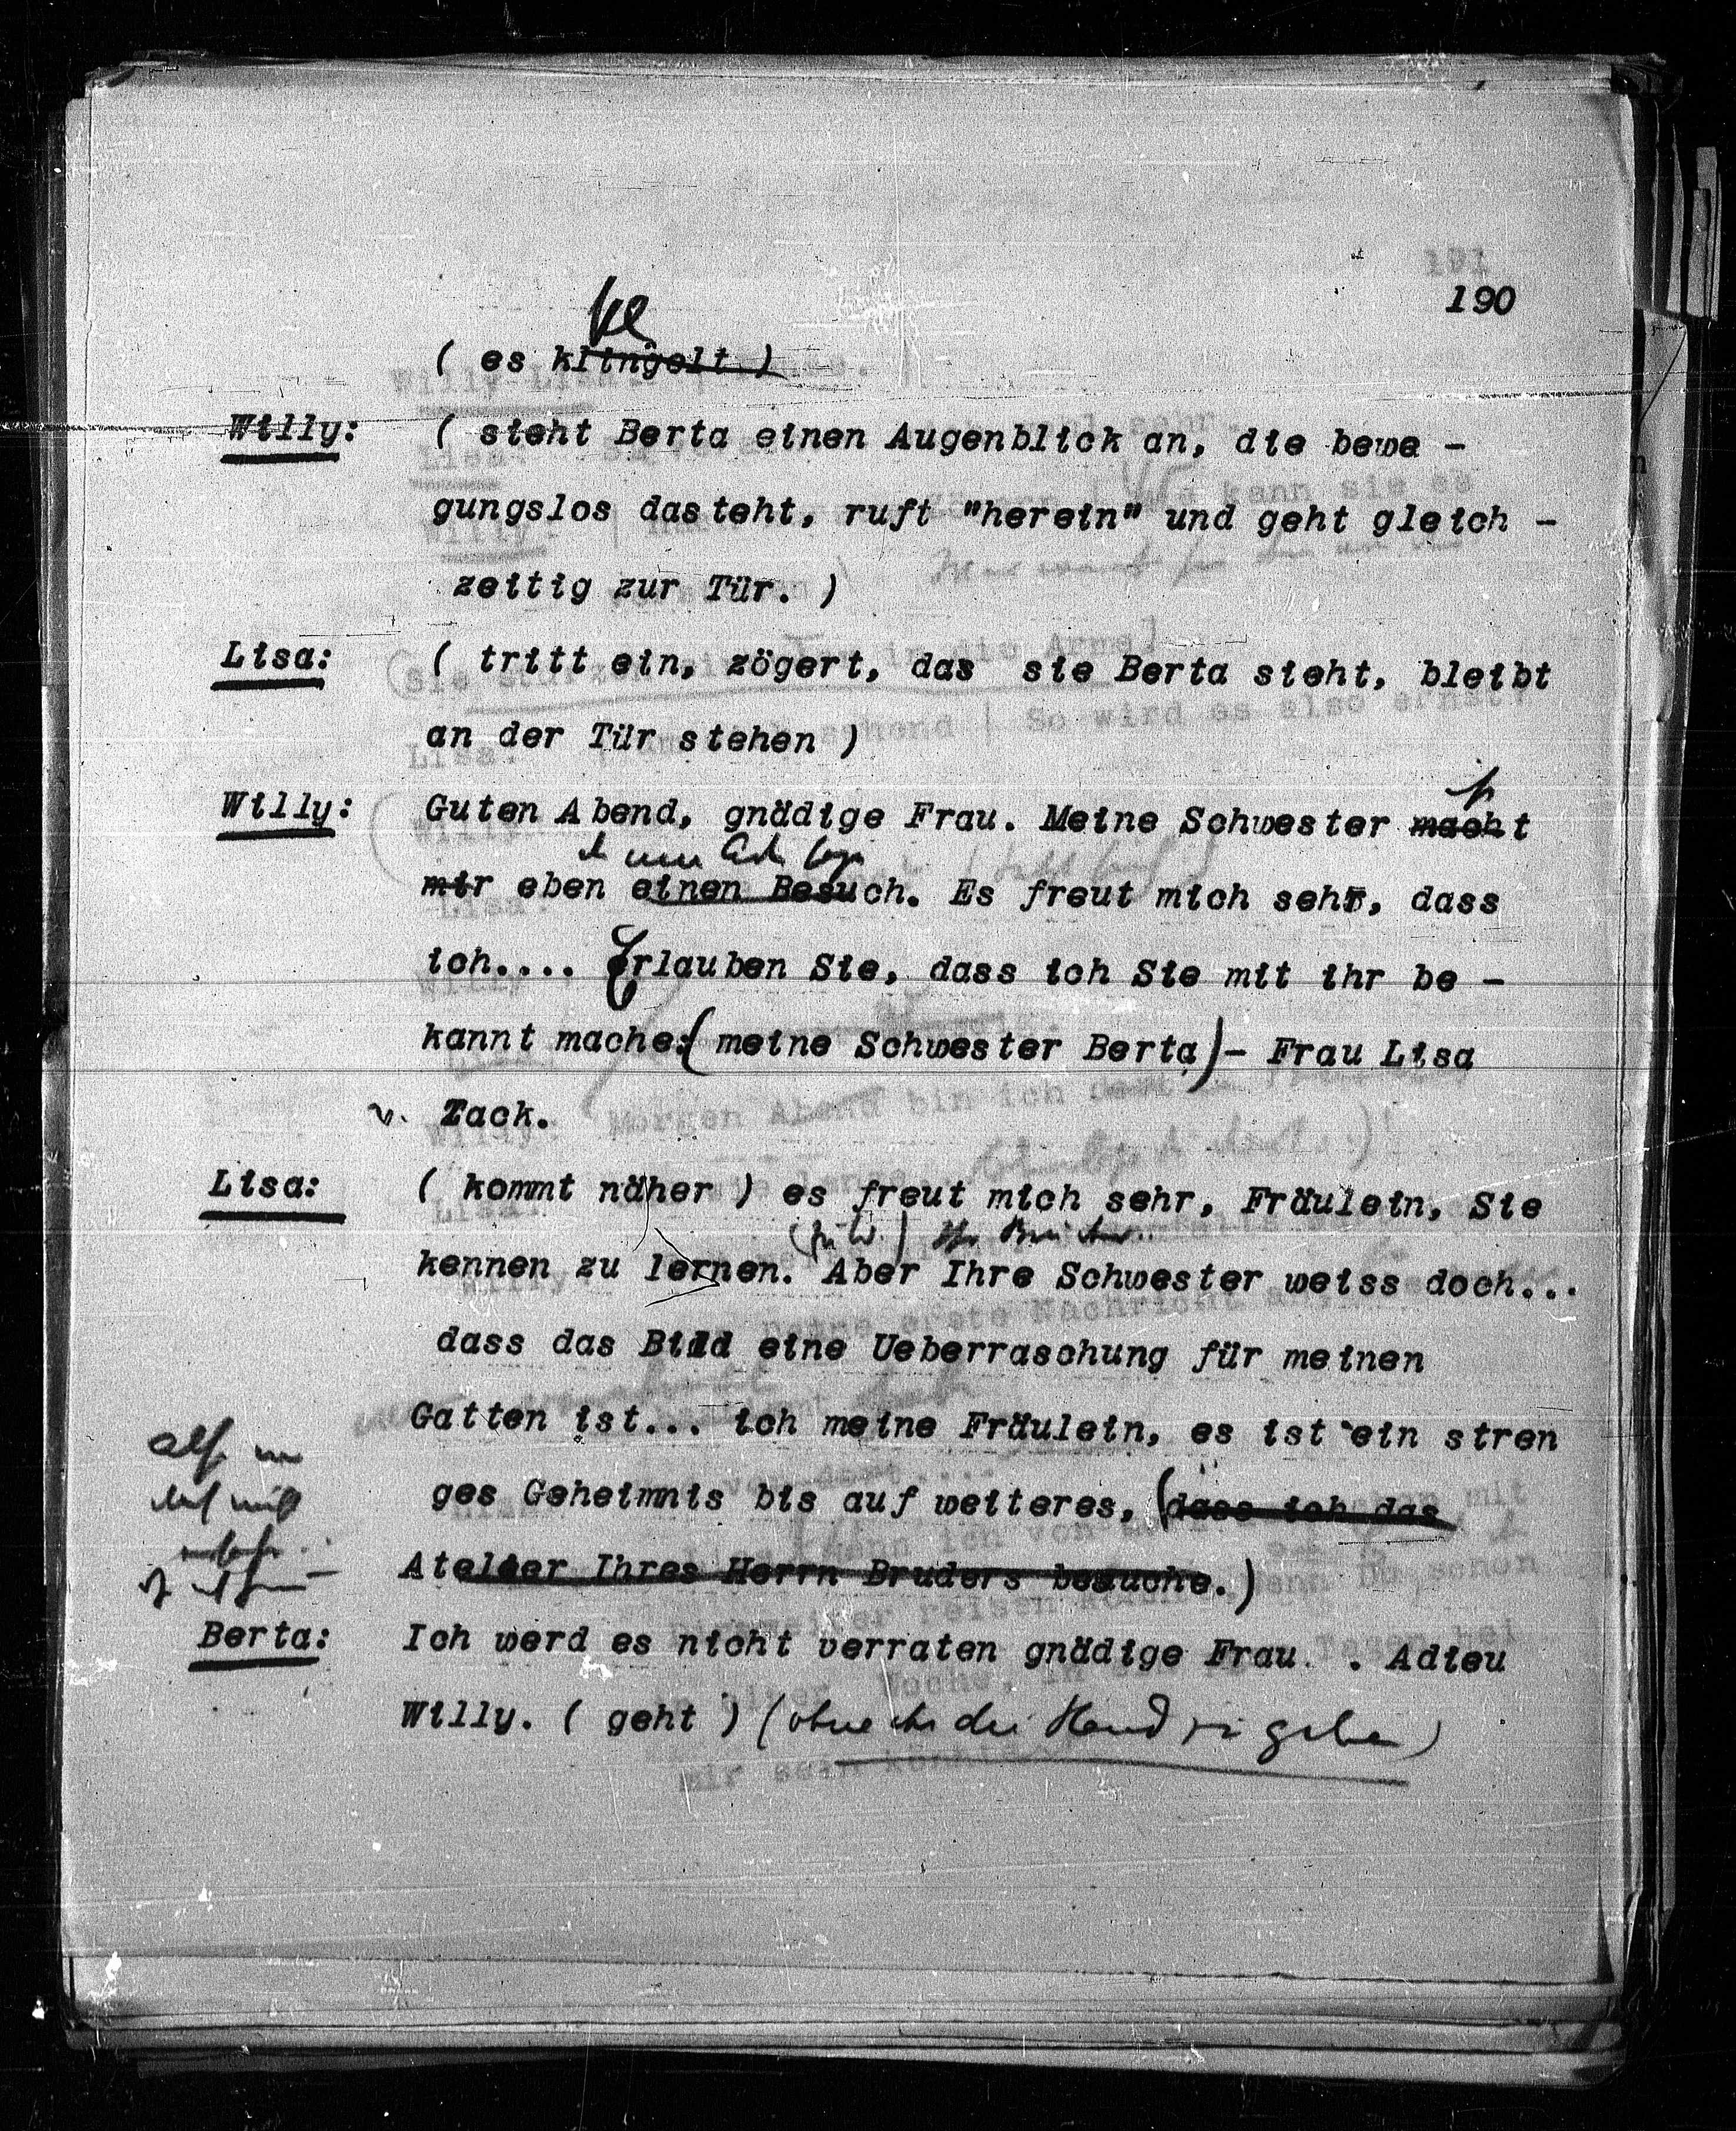 190
( es klingelt )
Willy: ( sieht Berta einen Augenblick an, die bewe -
gungslos dasteht, ruft "herein" und geht gleich -
zeitig zur Tür. )
Lisa: ( tritt ein, zögert, das sie Berta sieht, bleibt
an der Tür stehen )
Willy: Guten Abend, gnädige Frau. Meine Schwester macht
mir eben einen Besuch. Es freut mich sehr, dass
ich.... Erlauben Sie, dass ich Sie mit ihr be -
kannt mache: ( meine Schwester Berta ) - Frau Lisa
v. Zack.
Lisa: ( kommt näher ) es freut mich sehr, Fräulein, Sie
kennen zu lernen. Aber Ihre Schwester weiss doch...
dass das Bild eine Ueberraschung für meinen
Gatten ist... ich meine Fräulein, es ist ein stren
ges Geheimnis bis auf weiteres, (dass ich das
Atelier Ihres Herrn Bruders besuche.)
Berta: Ich werd es nicht verraten gnädige Frau. . Adieu
Willy. ( geht ) (ohne ihr die Hand zu geben)